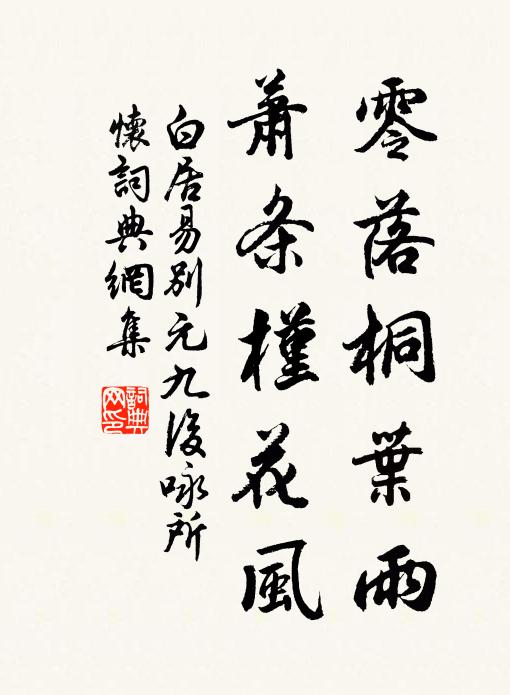 零落桐葉雨
蕭条槿花風
白居易別元九後咏所
懷詞典網集
詞典
网印